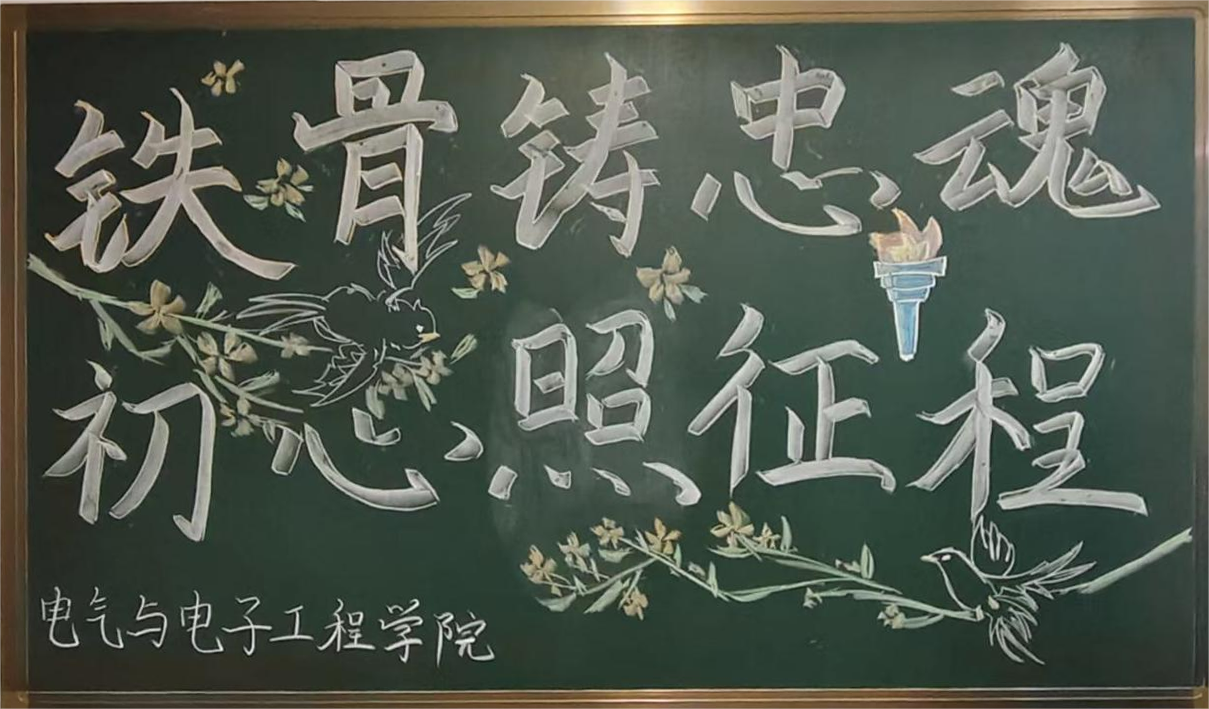 铁骨铸忠魂
初心照征程
电气与电子工程学院